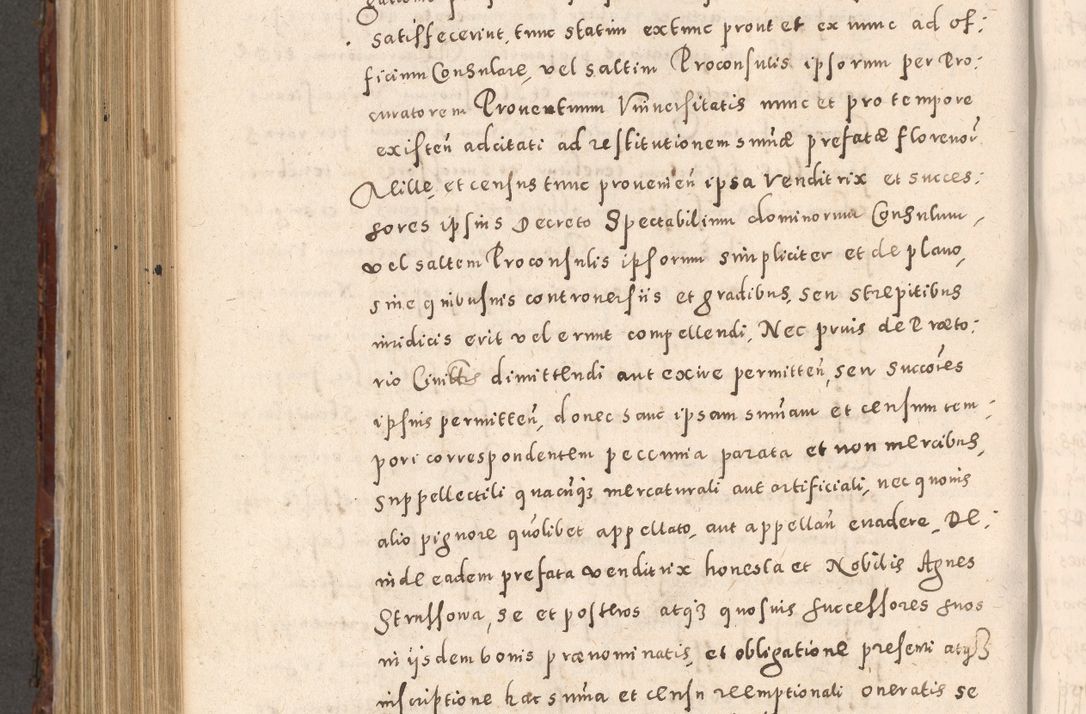 satisfecerint, tunc statim extunc prout et ex nunc ad of:
ficium Consulare, vel saltim Proconsulis ipsorum per Pro:
curatorem Proventuum Vniversitatis nunc et pro tempore
existeñ adcitati ad restitutionem sum̃æ prefatæ florenor̃
Mille, et census tunc provenieñ ipsa Venditrix et succes:
sores ipsius Decreto Spectabilium dominorum Consulum,
vel saltem Proconsulis ipsorum simpliciter et de plano,
sine quibusuis controuersiis et gradibus, seu strepitibus
iuridicis erit vel erunt compellendi, Nec prius de Præto:
rio Civittis dimittendi aut exire permitteñ, seu succores
ipsius permitteñ, donec sanc ipsam sum̃am et censum tem:
pori correspondentem peccunia parata et non mercibus,
suppellectili quacũqȝ mercaturali aut artificiali, nec quouis
alio pignore quolibet appellato, aut appellañ euadere, De:
inde eadem prefata venditrix honesta et Nobilis Agnes
Strussowa, se et posteros atqȝ quosuis successores suos
in ijsdem bonis prænominatis, et obligatione presenti atqȝ
inscriptione hac sum̃a et censu reemptionali oneratis se